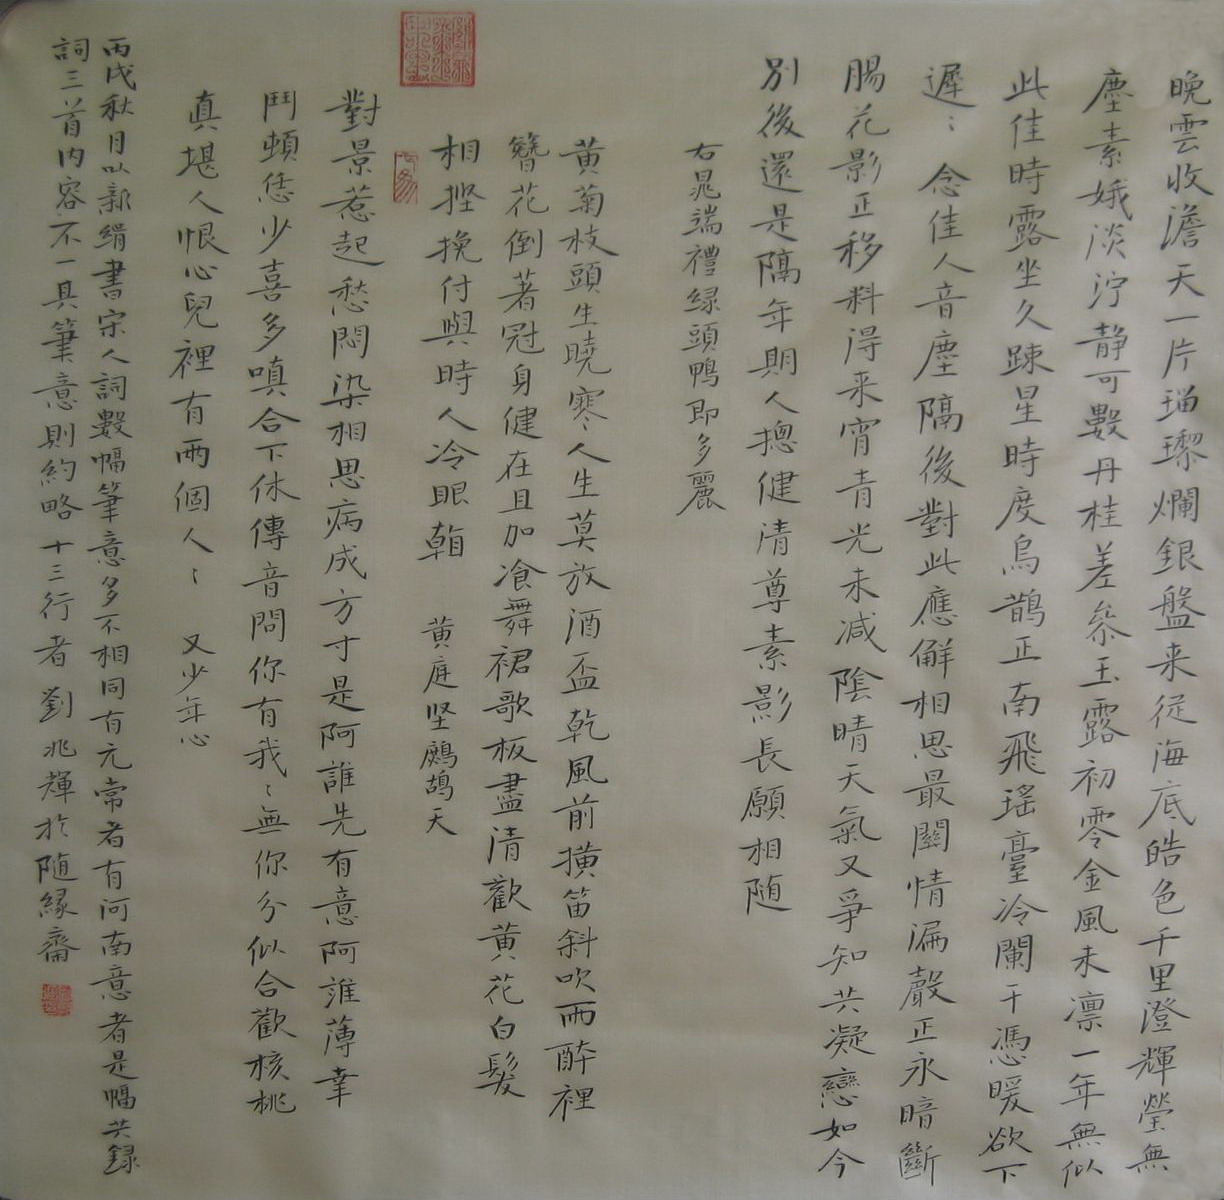 晚雲收澹天一片瑠瓈爛銀盤来從海底皓色千里澄輝瑩無
塵素娥淡泞靜可數丹桂差參玉露初零金風未凛一年無似
此佳時露坐久踈星時度烏鵲正南飛瑤臺冷闌干馮暖欲下
遲〻 念佳人音塵隔後對此應解相思最關情漏聲正永暗斷
腸花影正移料得来宵青光未減陰晴天氣又爭知共凝戀如今
別後還是隔年期人摠健清尊素影長願相随
右晁端禮緑頭鴨即多麗
黄菊枝頭生曉寒人生莫放酒盃乾風前橫笛斜吹雨醉裡
簪花倒著冠身健在且加飡舞裙歌板盡清歡黄花白髮
相挃挽付與時人冷眼 黄庭坚鷓鴣天
對景惹起愁悶染相思病成方寸是阿誰先有意阿誰薄幸
鬥頓恁少喜多嗔合下休傳音問你有我〻無你分似合歡核桃
真堪人恨心兒裡有兩個人〻 又少年心
丙戌秋月以新絹書宋人詞數幅筆意多不相同有元常者有河南意者是幅共録
詞三首内容不一具筆意則約略十三行者劉兆輝於随緣齋